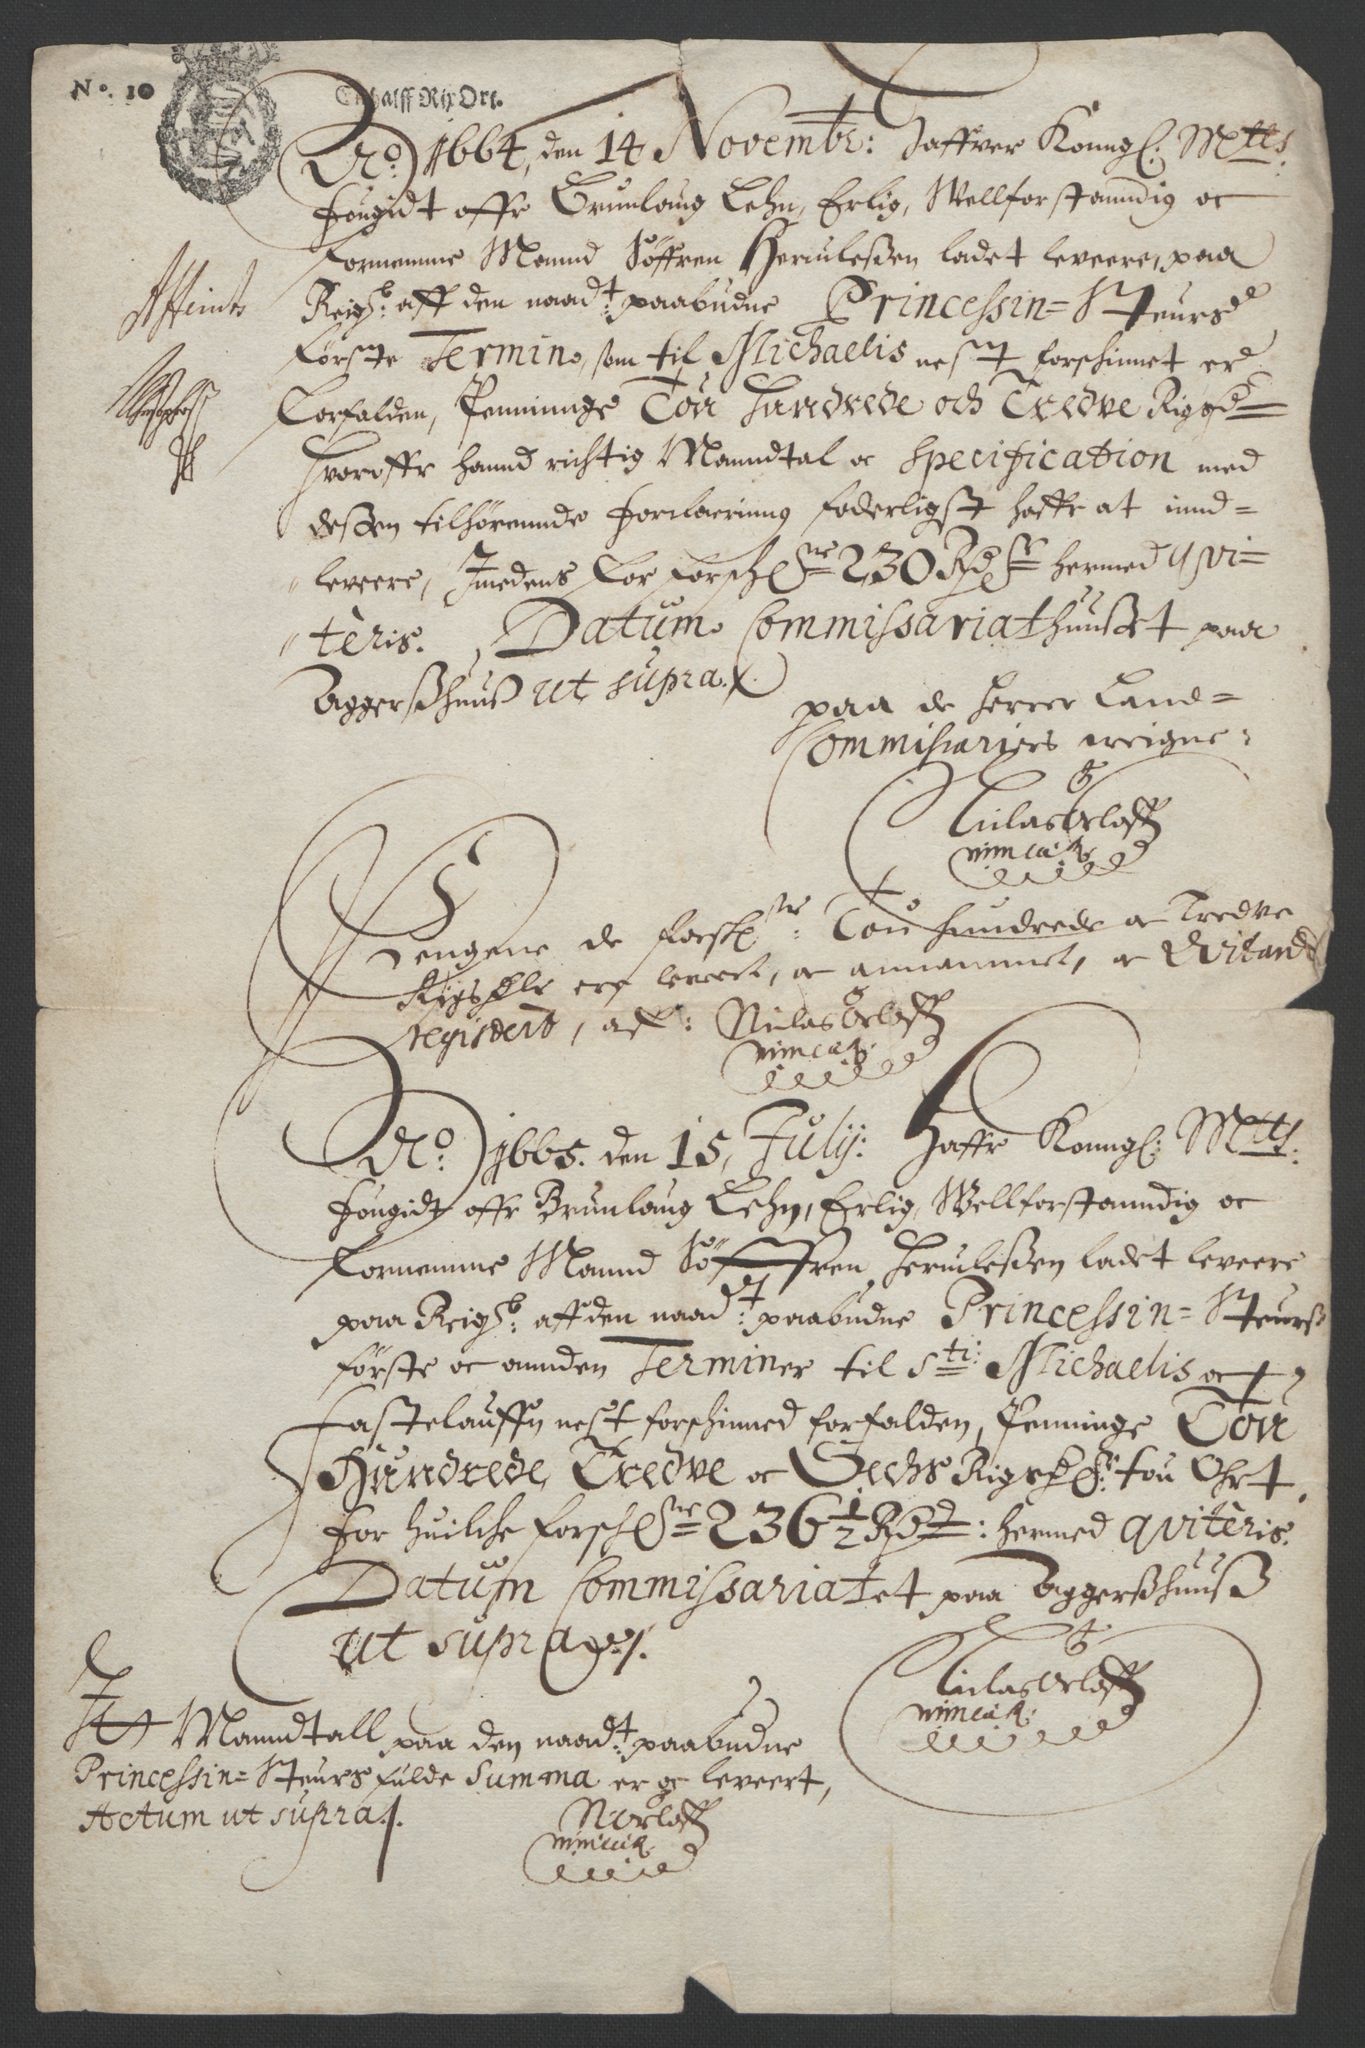 No. 10
En halff Rix Ort.
Ao. 1664, den 14 Novembr: Haffver Konngl: Mtts
fougidt offr Brunlaug Lehn, Erlig, Wellforstanndig oc
fornemme Mannd Söffren Herculeßen ladet levere, paa
Reigb: aff den naadt: paabudne Princessin=Steurs
förste Termino, som til Michaelis nest forschinnet er
forfalden, Penninge Tou Hundrede och Tredve Rigsd
Hvoroffr hannd richtig Manndtal oc Specification med
deßen tilhörennde forclaerinng foderligst haffr at innd=
levere, Imedens for forschne 230 Rdlr hermed qvi=
teris. Datum Commissariathuußet paa
Aggerßhuuß ut supra.
paa de Herrer Land=
Commissariers weigne:
Niclas Orloff
mmcia
Pengene de forschne: Tou hundrede oc Tredve
Rigsdlr ere leveret, oc annammet, oc Qvitands
registert, aff: Niclas Orloff
mmcia
Ao. 1665. den 15, Julij: Haffr Konngl: Mtts:
fougidt offr Brunlaug Lehn, Erlig, Wellforstanndig oc
fornemme Mannd Söffren Herculeßen ladet levere
paa Reigb: aff den naadt: paabudne Princessin=Steurs
förste oc annden Terminer til Sti: Michaelis oc
Fastelauffn nest forschinned forfalden, Penninge Tou
Hundrede, Tredve oc Sechs Rigsdlr: tou Ohrt,
for huilche forschne 236 1/2 Rdr: hermed qviteris.
Datum Commissariatet paa Aggerßhuuß
ut supra.
Niclas Orloff
mmcia
Manndtall paa den naadt: paabudne
Princessin=Steurs fulde Summa er oc leveert,
Actum ut supra.
NOrloff
mmcia